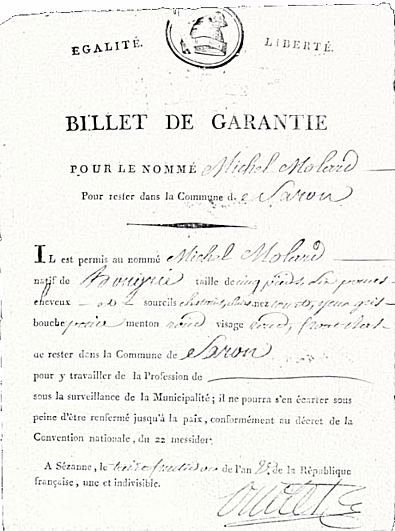 EGALITÉ. LIBERTÉ.
BILLET DE GARANTIE
POUR LE NOMMÉ Michel Molard
Pour rester dans la Commune d. e Saron
IL est permis au nommé Michel Molard
natif de taille de cinq pieds, six pouces
cheveux - et sourcils nez yeux gris
bouche menton rond visage rond, front
de rester dans la Commune de Saron
pour y travailler de la Profession de
sous la surveillance de la Municipalité; il ne pourra s'en écarter sous
peine d'être renfermé jusqu'à la paix, conformément au décret de la
Convention nationale, du 22 messidor.
A Sézanne, le trois fructidor de l'an 2e. de la République
française, une et indivisible.